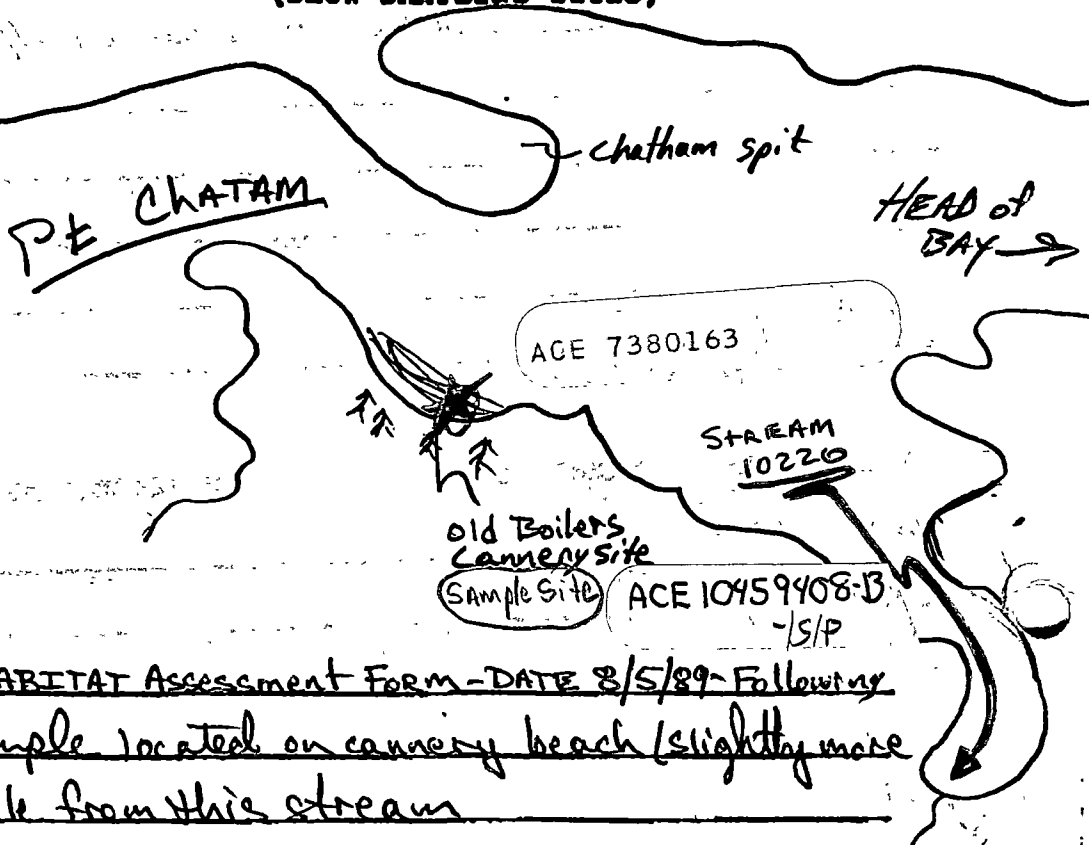 chatham spit
Pt ChATAM
HEAD of
BAY
ACE 7380163
STREAM
10220
old Boilers
Cannery site
Sample Site
ACE 10459408-B
-/S/P
ABITAT Assessment FORM-DATE 8/5/89-Following
mple located on cannery beach (slightly more
le from this stream